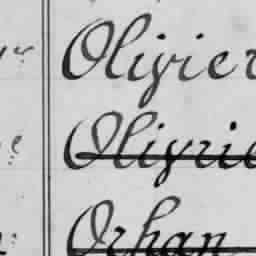 Olivier
Olivie
Orhan